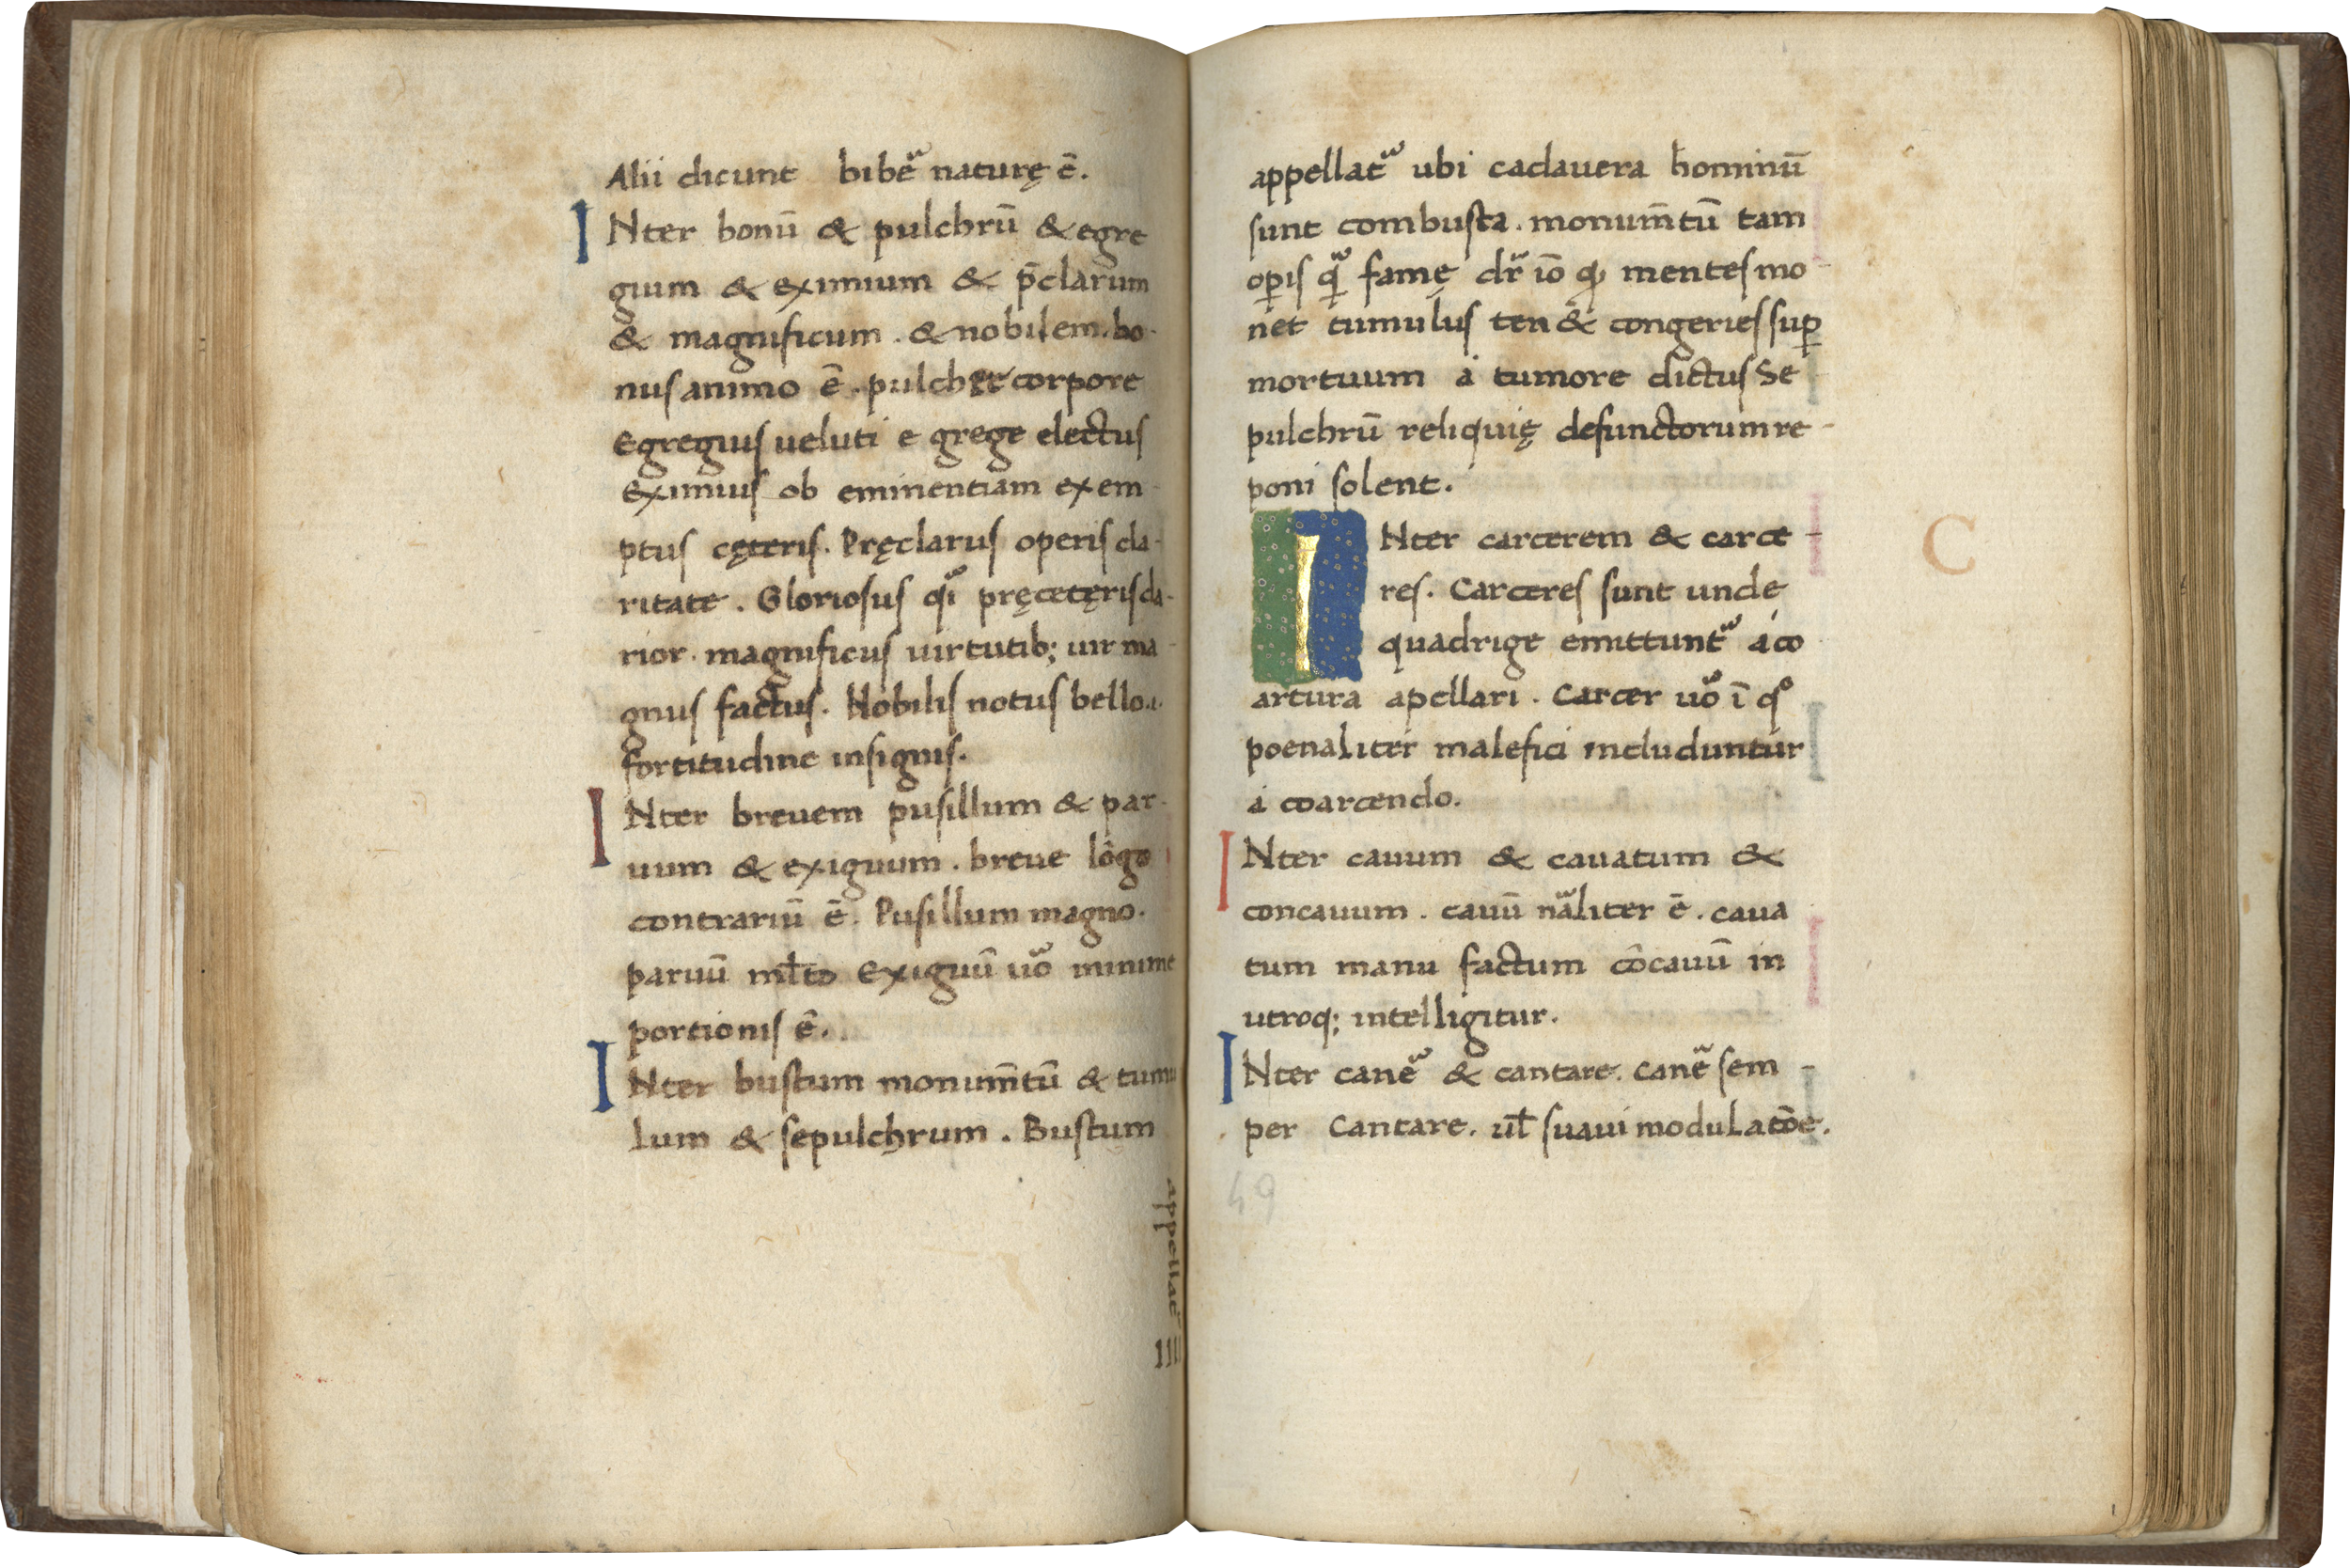 Alii dicunt bibẽ naturę ẽ.
INter bonũ & pulchrũ & egre
gium & eximium & p̃clarum
& magnificum . & nobilem. bo-
nus animo ẽ . pulcher corpore
Egregius ueluti e grege electus
Eximius ob eminentiam exem
ptus cęteris. Pręclarus operis cla-
ritate . Gloriosus qͥ pręcetęris cla-
rior . magnificus uirtutib; uir ma
gnus factus. Nobilis notus bello .i.
fortitudine insignis.
INter breuem pusillum & par-
uum & exiguum . breue lõgo
contrariũ ẽ. Pusillum magno.
paruũ ml̃to Exiguũ uõ minime
portionis ẽ.
INter bustum monum̃tũ & tumu
lum & sepulchrum . Bustum
appellat̃
IIII
appellat̃ ubi cadauera hominũ
sunt combusta . monum̃tũ tam
oꝑis qͣ̃ famę dr̃ iõ ꝙ mentes mo-
net tumulus ten& congeries suꝑ
mortuum a tumore dictus Se
pulchrũ reliquię defunctorum re-
poni solent.
INter carcerem & carce-
res. Carceres sunt unde
quadrige emittunt̃ a co
artura apellari . Carcer uõ ĩ qͦ
poenaliter malefici includuntur
a coarcendo.
INter cauum & cauatum &
concauum . cauũ nãliter ẽ . caua
tum manu factum cõcauũ in
utroq; intelligitur.
INter canẽ & cantare. canẽ sem-
per Cantare. ul̃ suaui modulatõe.
49
C